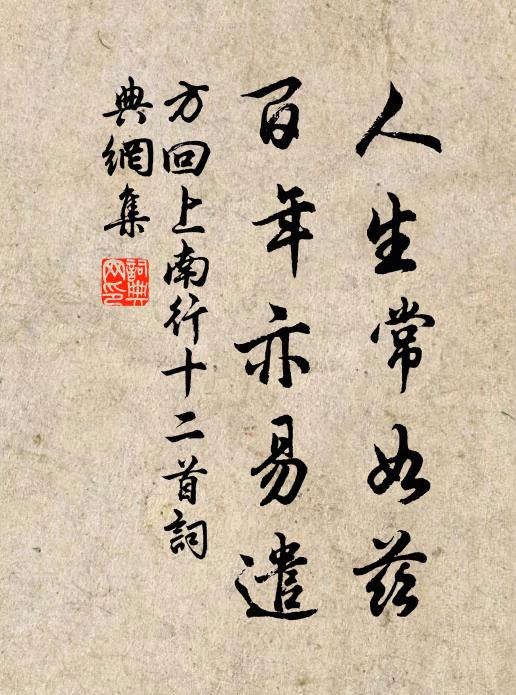 人生常如兹
百年亦易遣
方回上南行十二首詞
典網集
詞典
网印